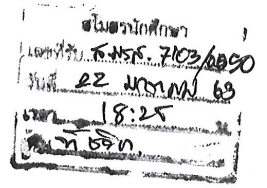 สโมสรนักศึกษา
เลขที่รับ สมรส. 7103/2550
วันที่ 22 มกราคม 63
เวลา 18:25